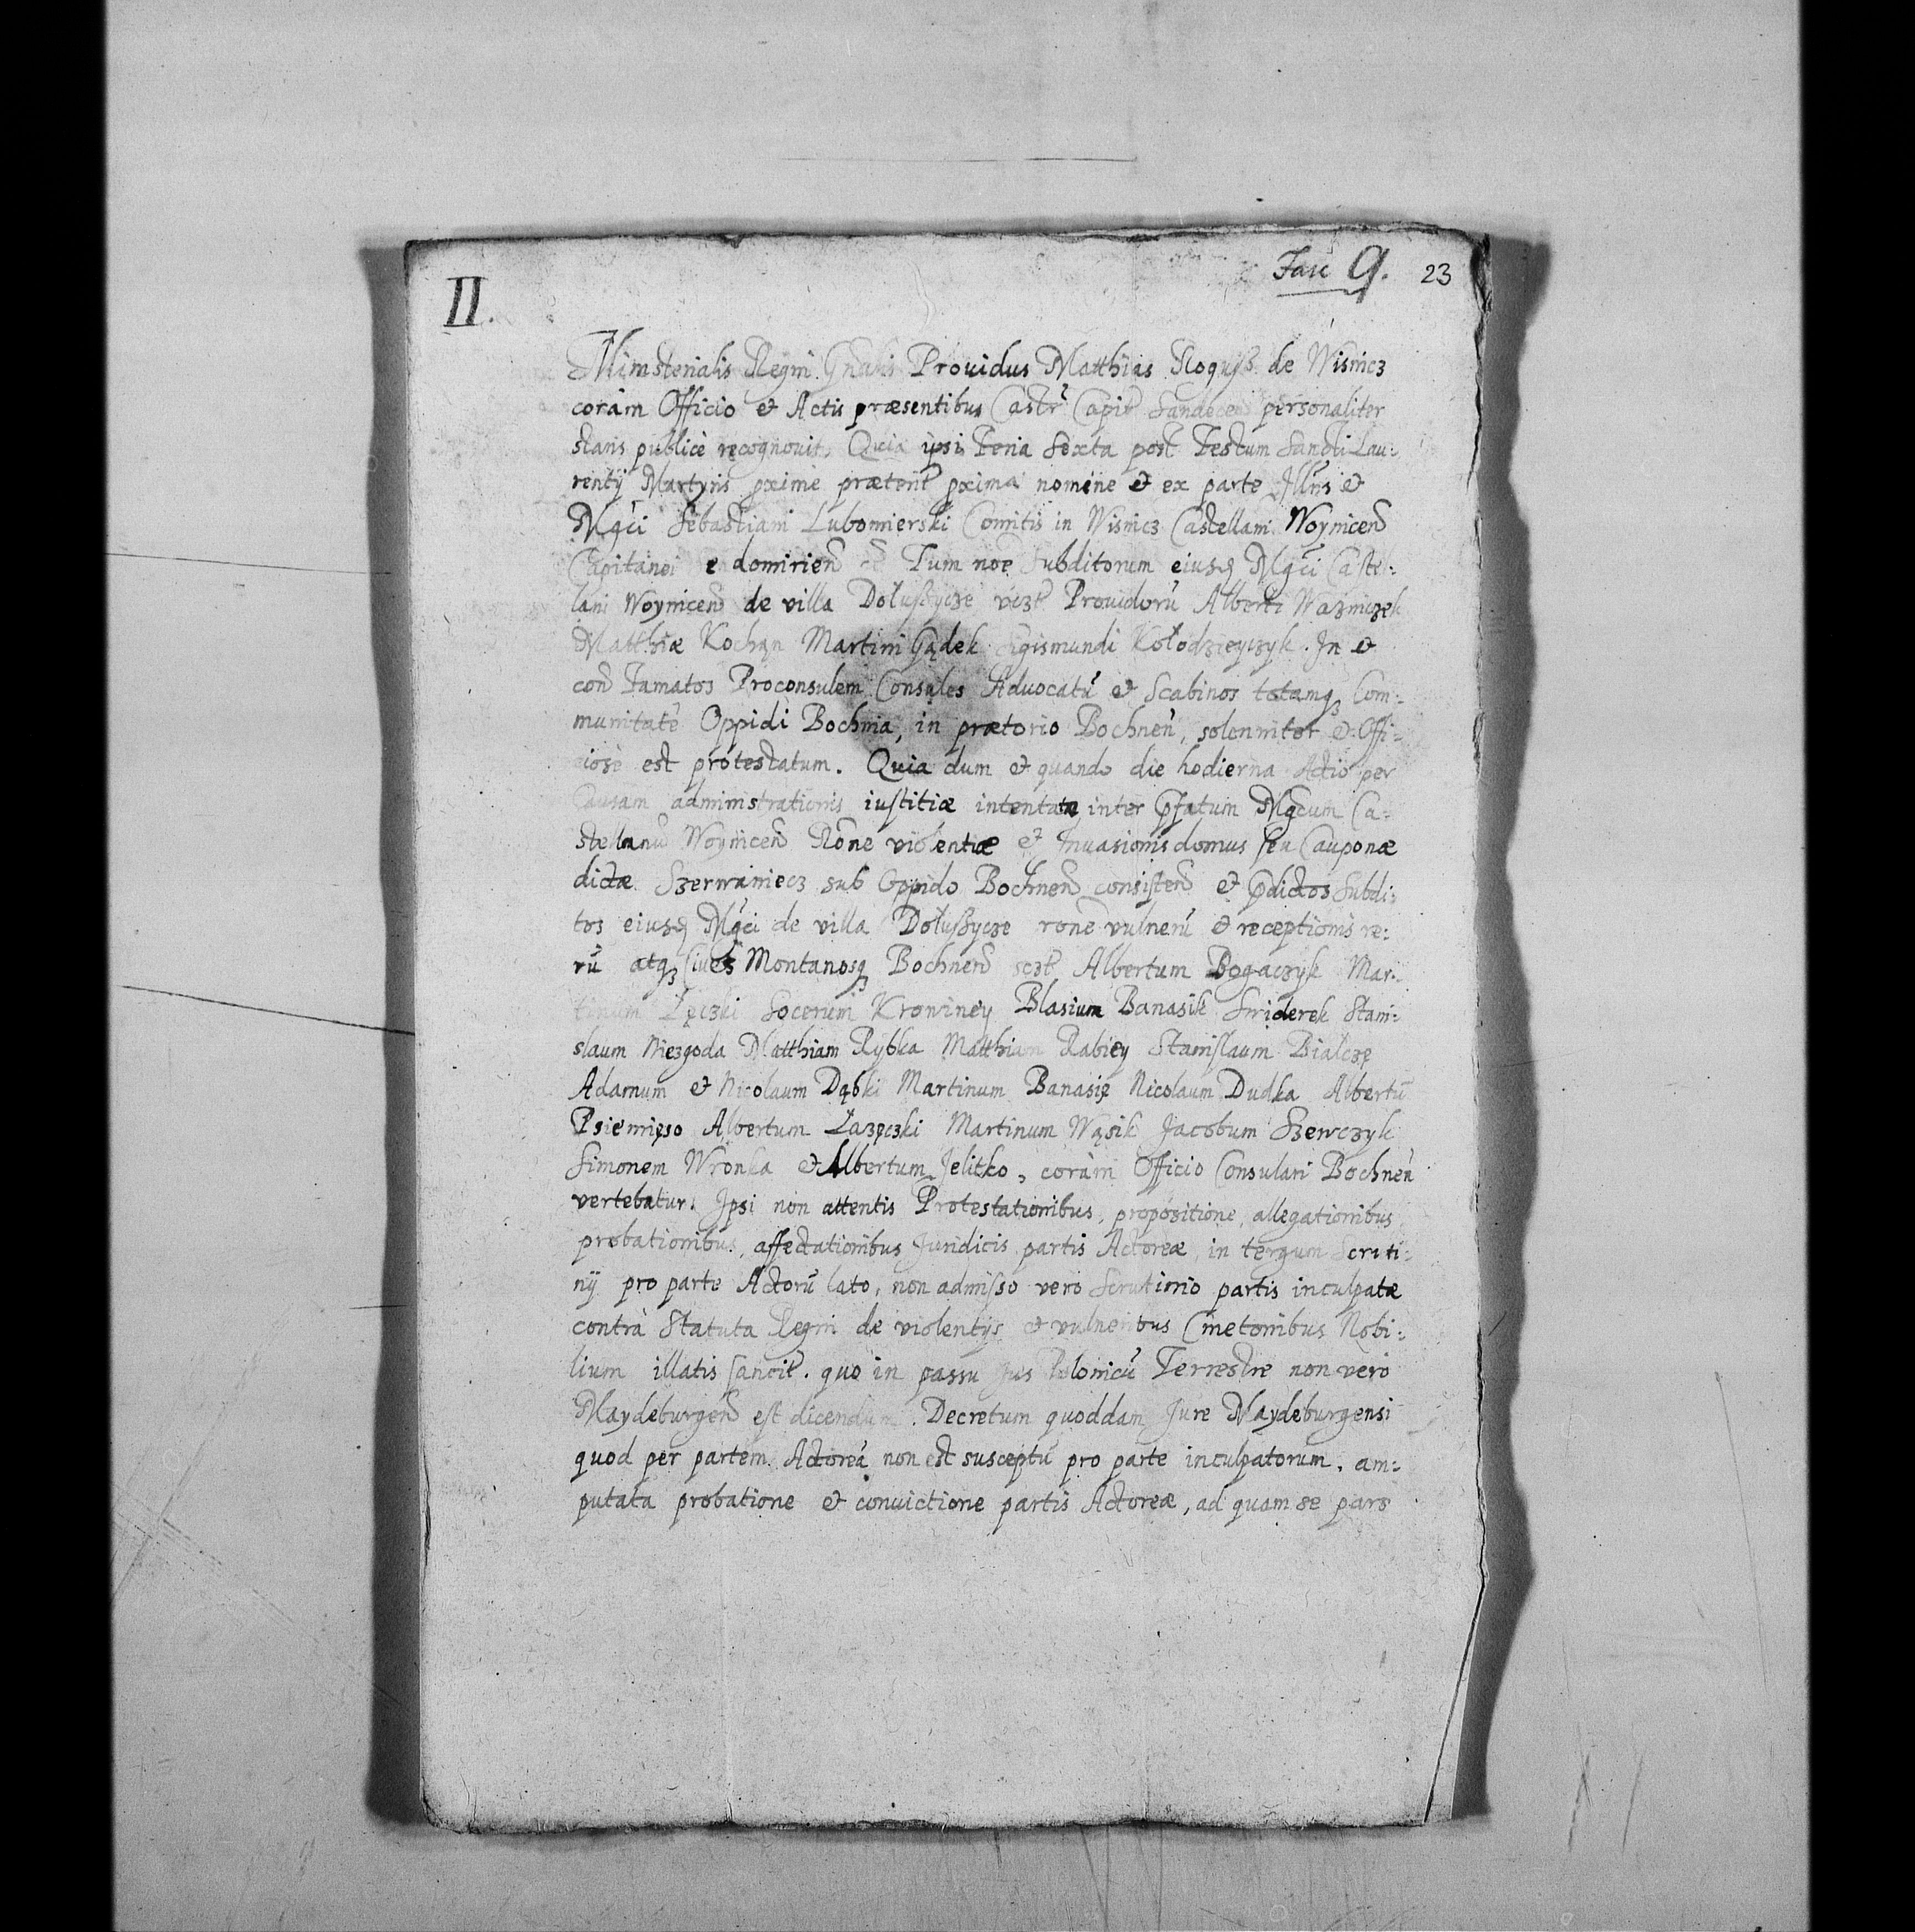 II.
Fasc 9. 23
Ministerialis Regni Gnalis Prouidus Matthias Roguss de Wisnicz
coram Officio et Actis præsentibus Castr Capit Sandecen personaliter
stans publicè recognouit, Quia ipsi Feria Sexta post Festum Sancti Lau-
rentij Martyris pxime præterit pxima nomine et ex parte Illris et
Mgci Sebastiani Lubomierski Comitis in Wisnicz Castellani Woynicen
Capitanei domirien Tum noe Subditorum eiusd Mgci Caste-
lani Woynicen de villa Dołussycze vczt Prouidorū Alberti Wazniczek
Matthiæ Kochan Martini Gądek Sigismundi Kołodzieyczyk. In et
con Famatos Proconsulem Consules Aduocatū et Scabinos totamq3 Com-
munitatē Oppidi Bochnia, in prætorio Bochnen, solenniter et Offi-
ciosè est protestatum. Quia dum et quando die hodierna Actio per
Causam administrationis iustitiæ intentata inter pfatum Mgcum Ca-
stellanū Woynicen Rone violentiæ et Inuasionis domus seu Cauponæ
dictæ Szerwaniecz sub Oppido Bochnen consisten et pdictos Subdi-
tos eiusd Mgci de villa Dołussycze rone vulnerū et receptionis re-
rū atq3 Ciues Montanosq3 Bochnen sczt Albertum Bogaczyk Mar-
tinum Łęczki Socerum Krowiney Blasium Banasik Sniderek Stani-
slaum Niezgoda Matthiam Rybka Matthiam Rabiey Stanislaum Bialczę
Adamum et Nicolaum Dąbki Martinum Banasię Nicolaum Dudka Albertū
Psiemięso Albertum Łazęczki Martinum Wąsik Jacobum Szewczyk
Simonem Wronka et Albertum Jelitko, coràm Officio Consulari Bochnen
vertebatur. Ipsi non attentis Protestationibus, propositione, allegationibus
probationibus, affectationibus Juridicis partis Actoreæ, in tergum Scruti-
nij pro parte Actorū lato, non admisso vero Scrutinio partis inculpatæ
contrà Statuta Regni de violentijs et vulneribus Cmetonibus Nobi-
lium illatis sancit. quo in passu Jus Polonicū Terrestre non vero
Maydeburgen est dicendum. Decretum quoddam Jure Maydeburgensi
quod per partem Actoreā non est susceptū pro parte inculpatorum, am-
putata probatione et conuictione partis Actoreæ, ad quam se pars